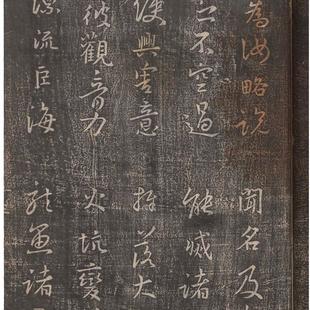 為汝略說 聞名及
心不空過 能滅諸
使興害意 推落大
彼觀音力 火坑變
漂流巨海 龍魚諸